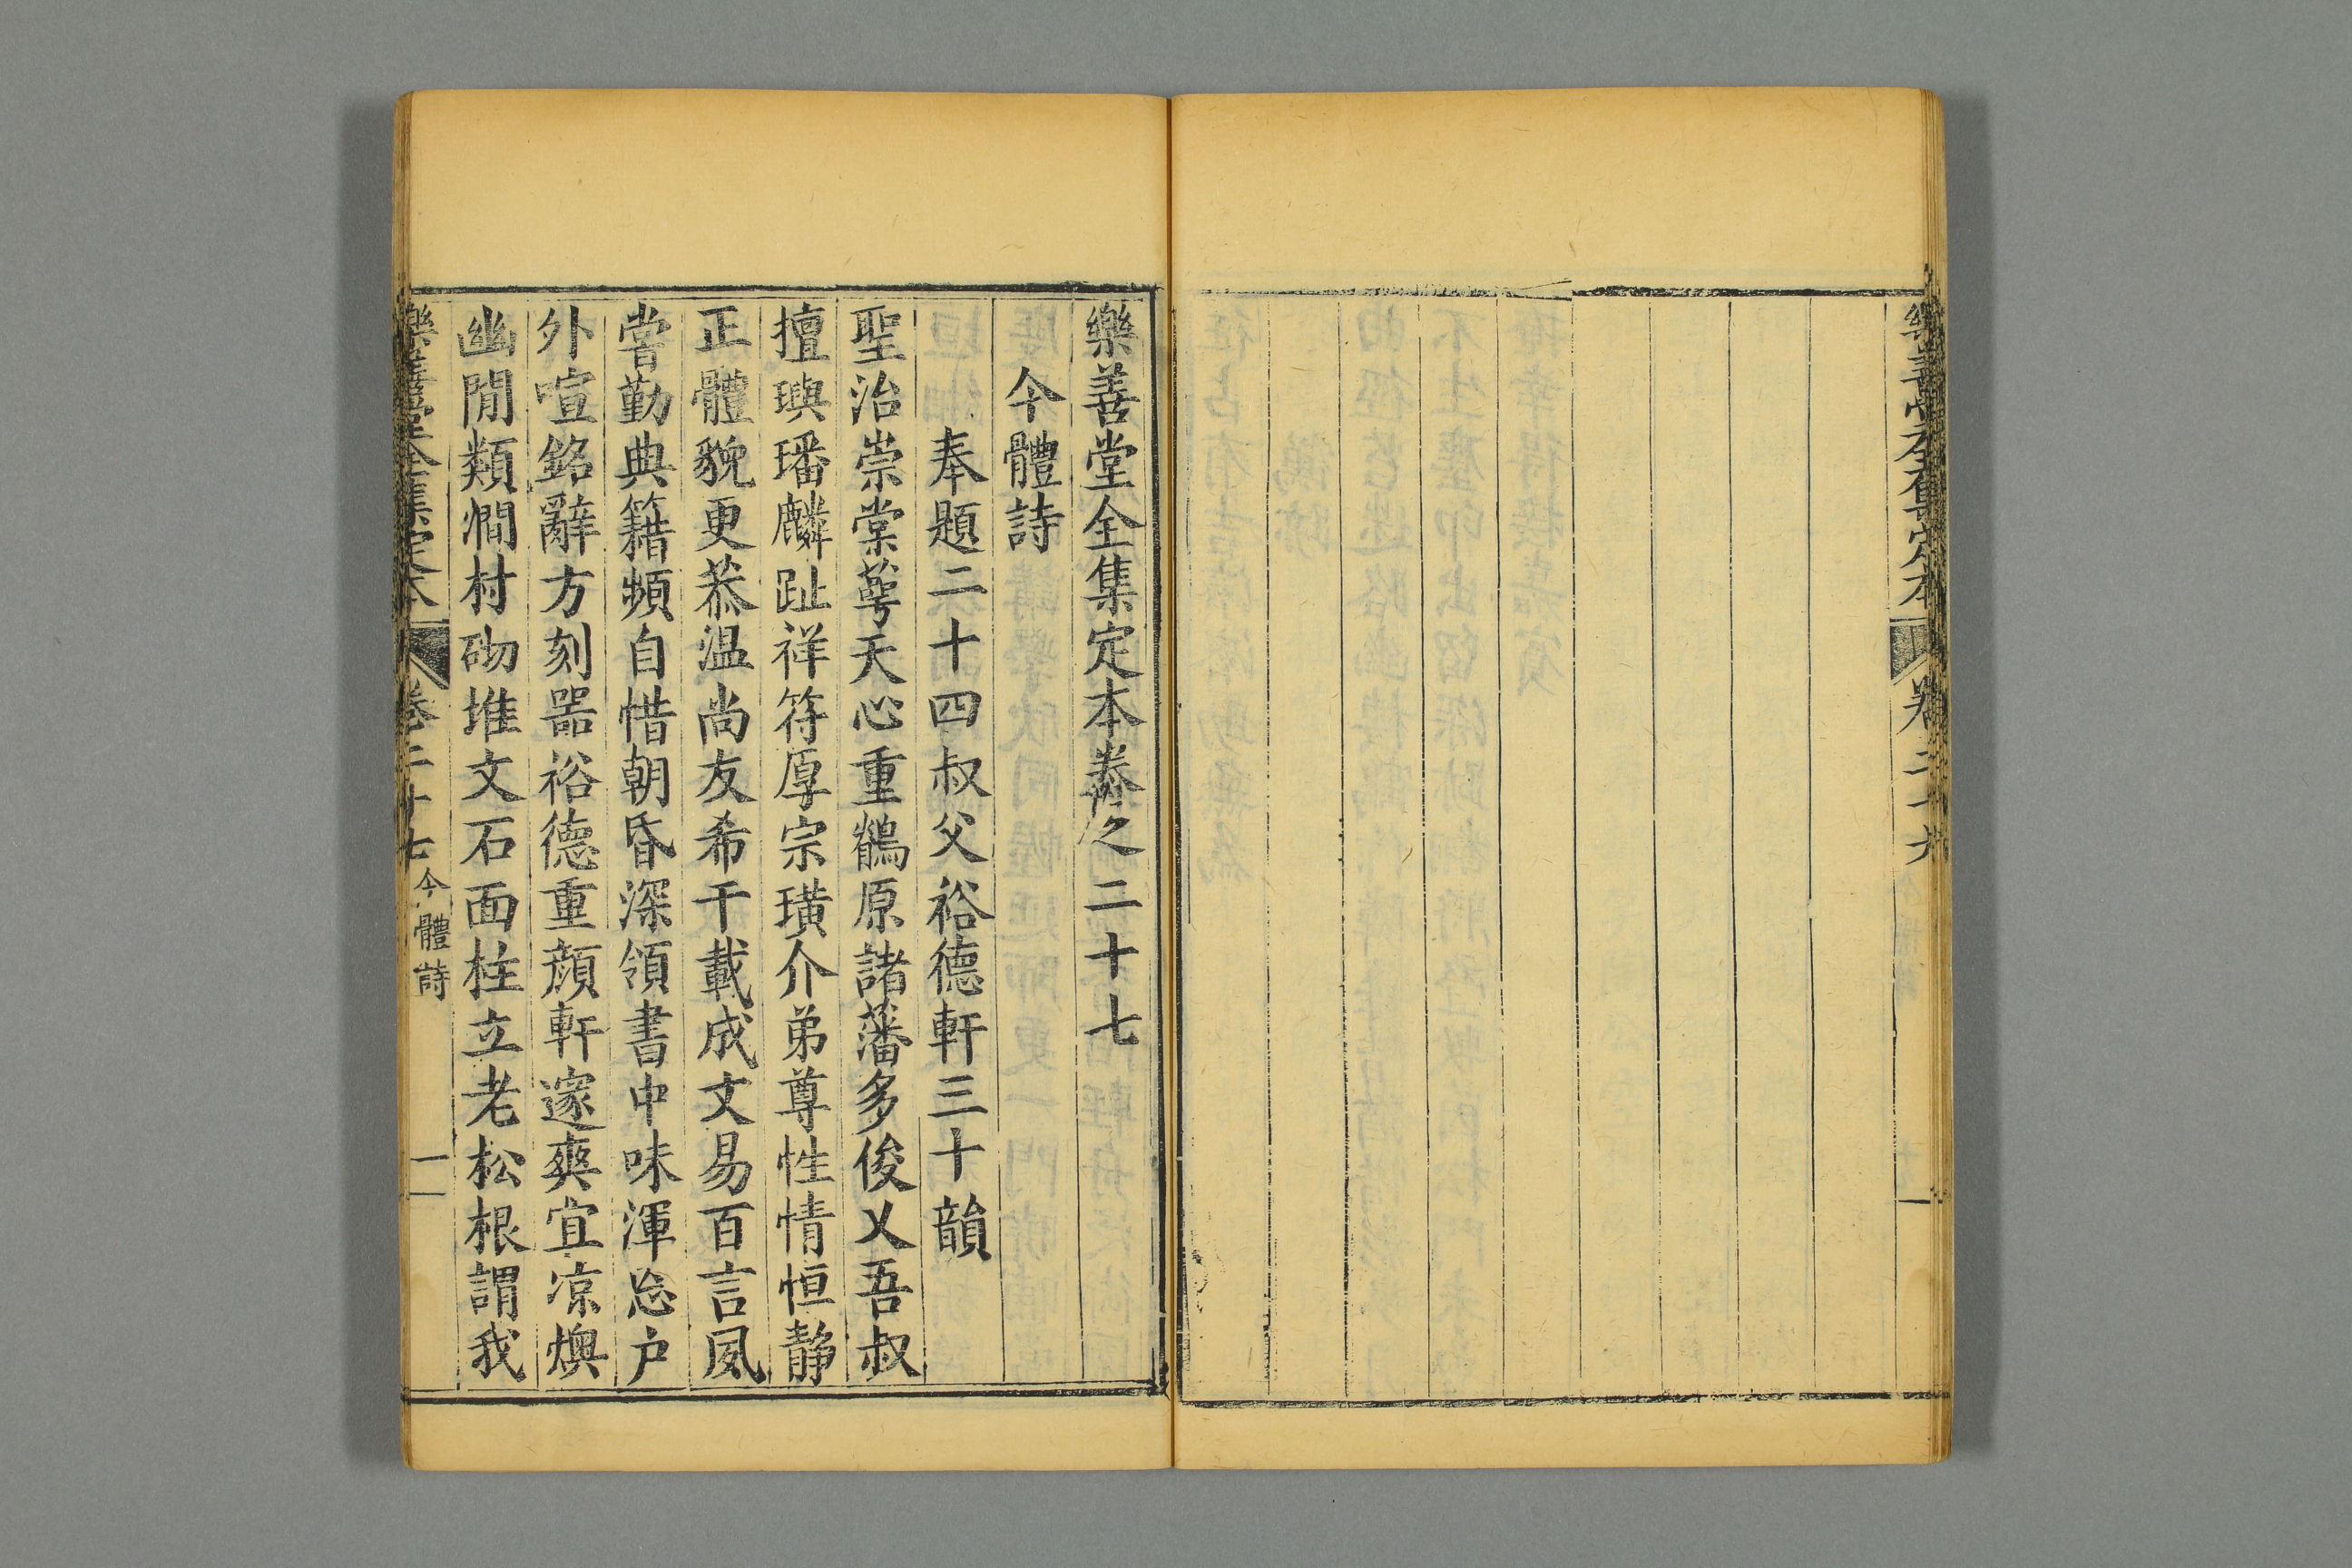 樂善堂全集定本
卷二十六
樂善堂全集定本卷之二十七
今體詩
奉題二十四叔父裕德軒三十韻
聖治崇棠萼天心重鶺原諸藩多俊乂吾叔
擅璵璠麟趾祥符厚宗璜介弟尊性情恒静
正體貌更恭温尚友希千載成文易百言夙
嘗勤典籍頻自惜朝昏深領書中味渾忘户
外喧銘辭方刻噐裕德重顔軒邃爽宜凉燠
幽閒類澗村砌堆文石面柱立老松根謂我
樂善堂全集定本
卷二十七
今體詩
一